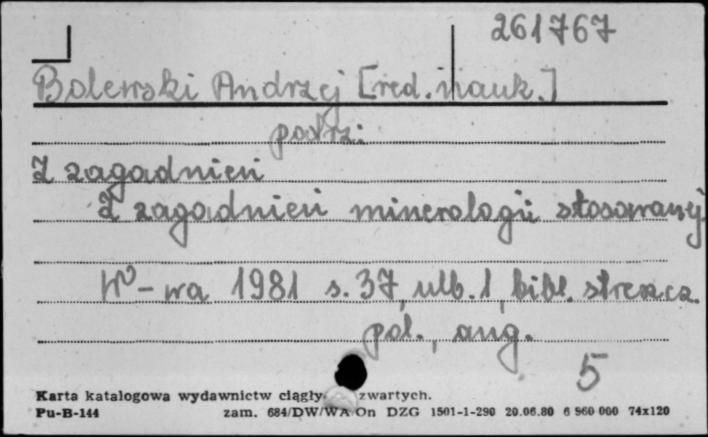 261767
Bolewski Andrzej [red. nauk.]
patrz:
Z zagadnień
Z zagadnień mineralogii stosowanej
W-wa 1981 s. 37, ulb. 1, bibl. streszcz.
pol., ang.
5
Karta katalogowa wydawnictw ciągły zwartych.
Pu-B-144 zam. 684/DW/WA/On DZG 1501-1-290 20.06.80 6 960 000 74x120